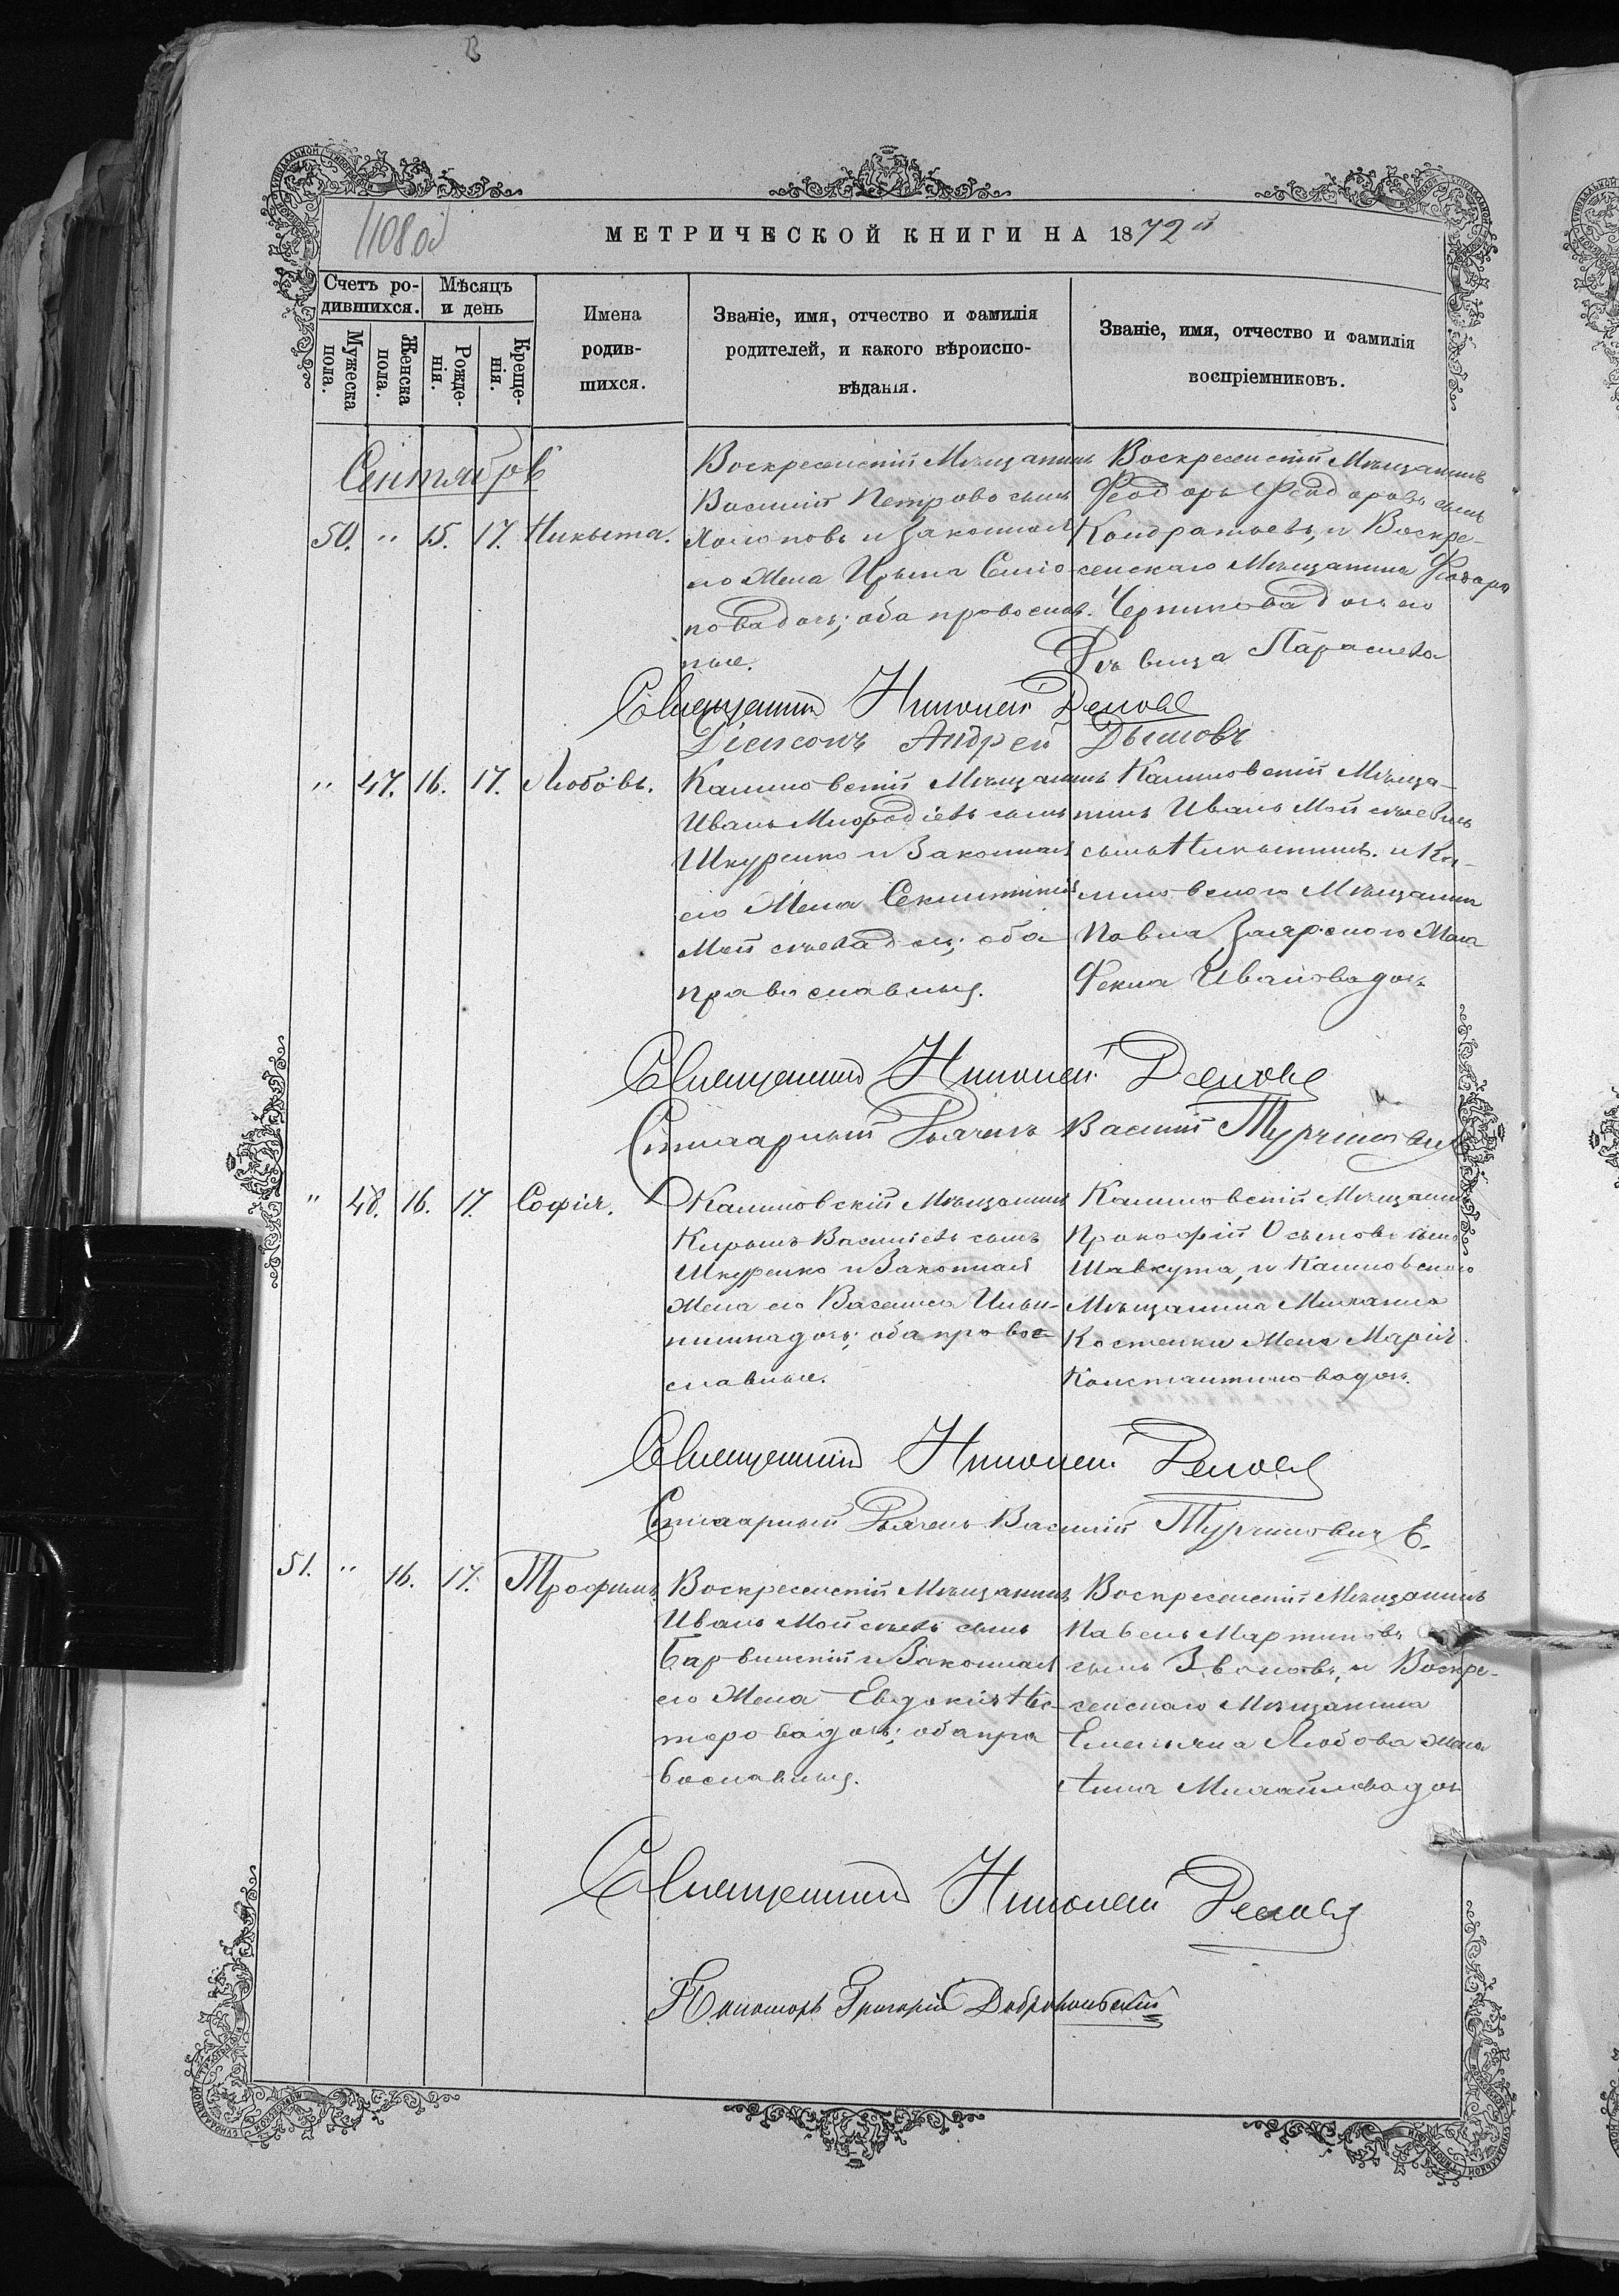 1108 об
МЕТРИЧЕСКОЙ КНИГИ НА 1872й
Счетъ ро-
дившихся.
Мужеска
пола.
Женска
пола.
Мѣсяцъ
и день
Рожде-
нія.
Креще-
нія.
Имена
родив-
шихся.
Званіе, имя, отчество и фамилія
родителей, и какого вѣроиспо-
вѣданія.
Званіе, имя, отчество и фамилія
воспріемниковъ.
Сентябрь
50. " 15. 17. Никита.
Воскресенскій Мѣщанинъ
Василій Петровъ сынъ
и Законная
его Жена Ирина
пова дочь; оба православ-
ные.
Воскресенскій Мѣщанинъ
Феодоръ Феодоровъ сынъ
Кондратьевъ, и Воскре-
сенскаго Мѣщанина
Черникова дочь его
Дѣвица Параскева
Священникъ Николай
Діаконъ Андрей Дымовъ
" 47. 16. 17. Любовь.
Калиновскій Мѣщанинъ
Иванъ сынъ
Шкуренко и Законная
его Жена
Мойсѣева дочь; оба
православныя.
Калиновскій Мѣща-
нинъ Иванъ Мойсѣевъ
сынъ Никитинъ. и Ка-
линовского Мѣщанина
Павла Заярского Жена
Фекла Иванова дочь
Священникъ Николай
Стихарный Дьячекъ Василій Турчиновичъ
" 48. 16. 17. Софія.
Калиновскій Мѣщанинъ
Кирилъ Васильевъ сынъ
Шкуренко и Законная
Жена его Васса
нична дочь; оба право-
славные.
Калиновскій Мѣщанинъ
Прокофій Осиповъ сынъ
Шавкута, и Калиновского
Мѣщанина Михаила
Костенка Жена Марія
Константинова дочь.
Священникъ Николай
Стихарный Дьячекъ Василій Турчиновичъ
51. " 16. 17. Трофимъ.
Воскресенскій Мѣщанинъ
Иванъ Мойсѣевъ сынъ
Барвинскій и Законная
его Жена Евдокія Нес-
терова дочь; оба пра
вославныя.
Воскресенскій Мѣщанинъ
Павелъ Мартиновъ
сынъ Звоновъ, и Воскре-
сенскаго Мѣщанина
Емельяна Любова Жена
Анна Михайлова дочь
Священникъ Николай
Пономарь Григорій Доброновскій